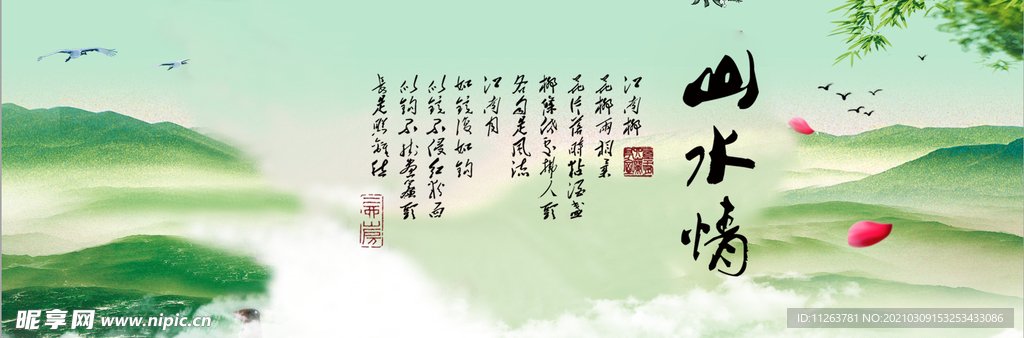 山水情
江南柳
花柳兩相柔
花片落時黏酒盞
柳條低處拂人頭
各自是風流
江南月
如鏡復如鉤
似鏡不侵紅粉面
似鉤不掛畫簾頭
長是照離愁
昵享网 www.nipic.cn
ID:11263781 NO:20210309153253433086